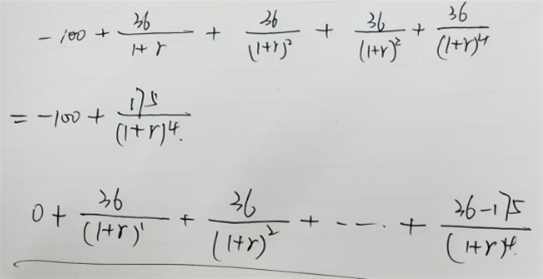 -100 + 36/(1+r) + 36/(1+r)² + 36/(1+r)³ + 36/(1+r)⁴
= -100 + 175/(1+r)⁴.
0 + 36/(1+r)¹ + 36/(1+r)² + ---- + 36-175/(1+r)⁴.